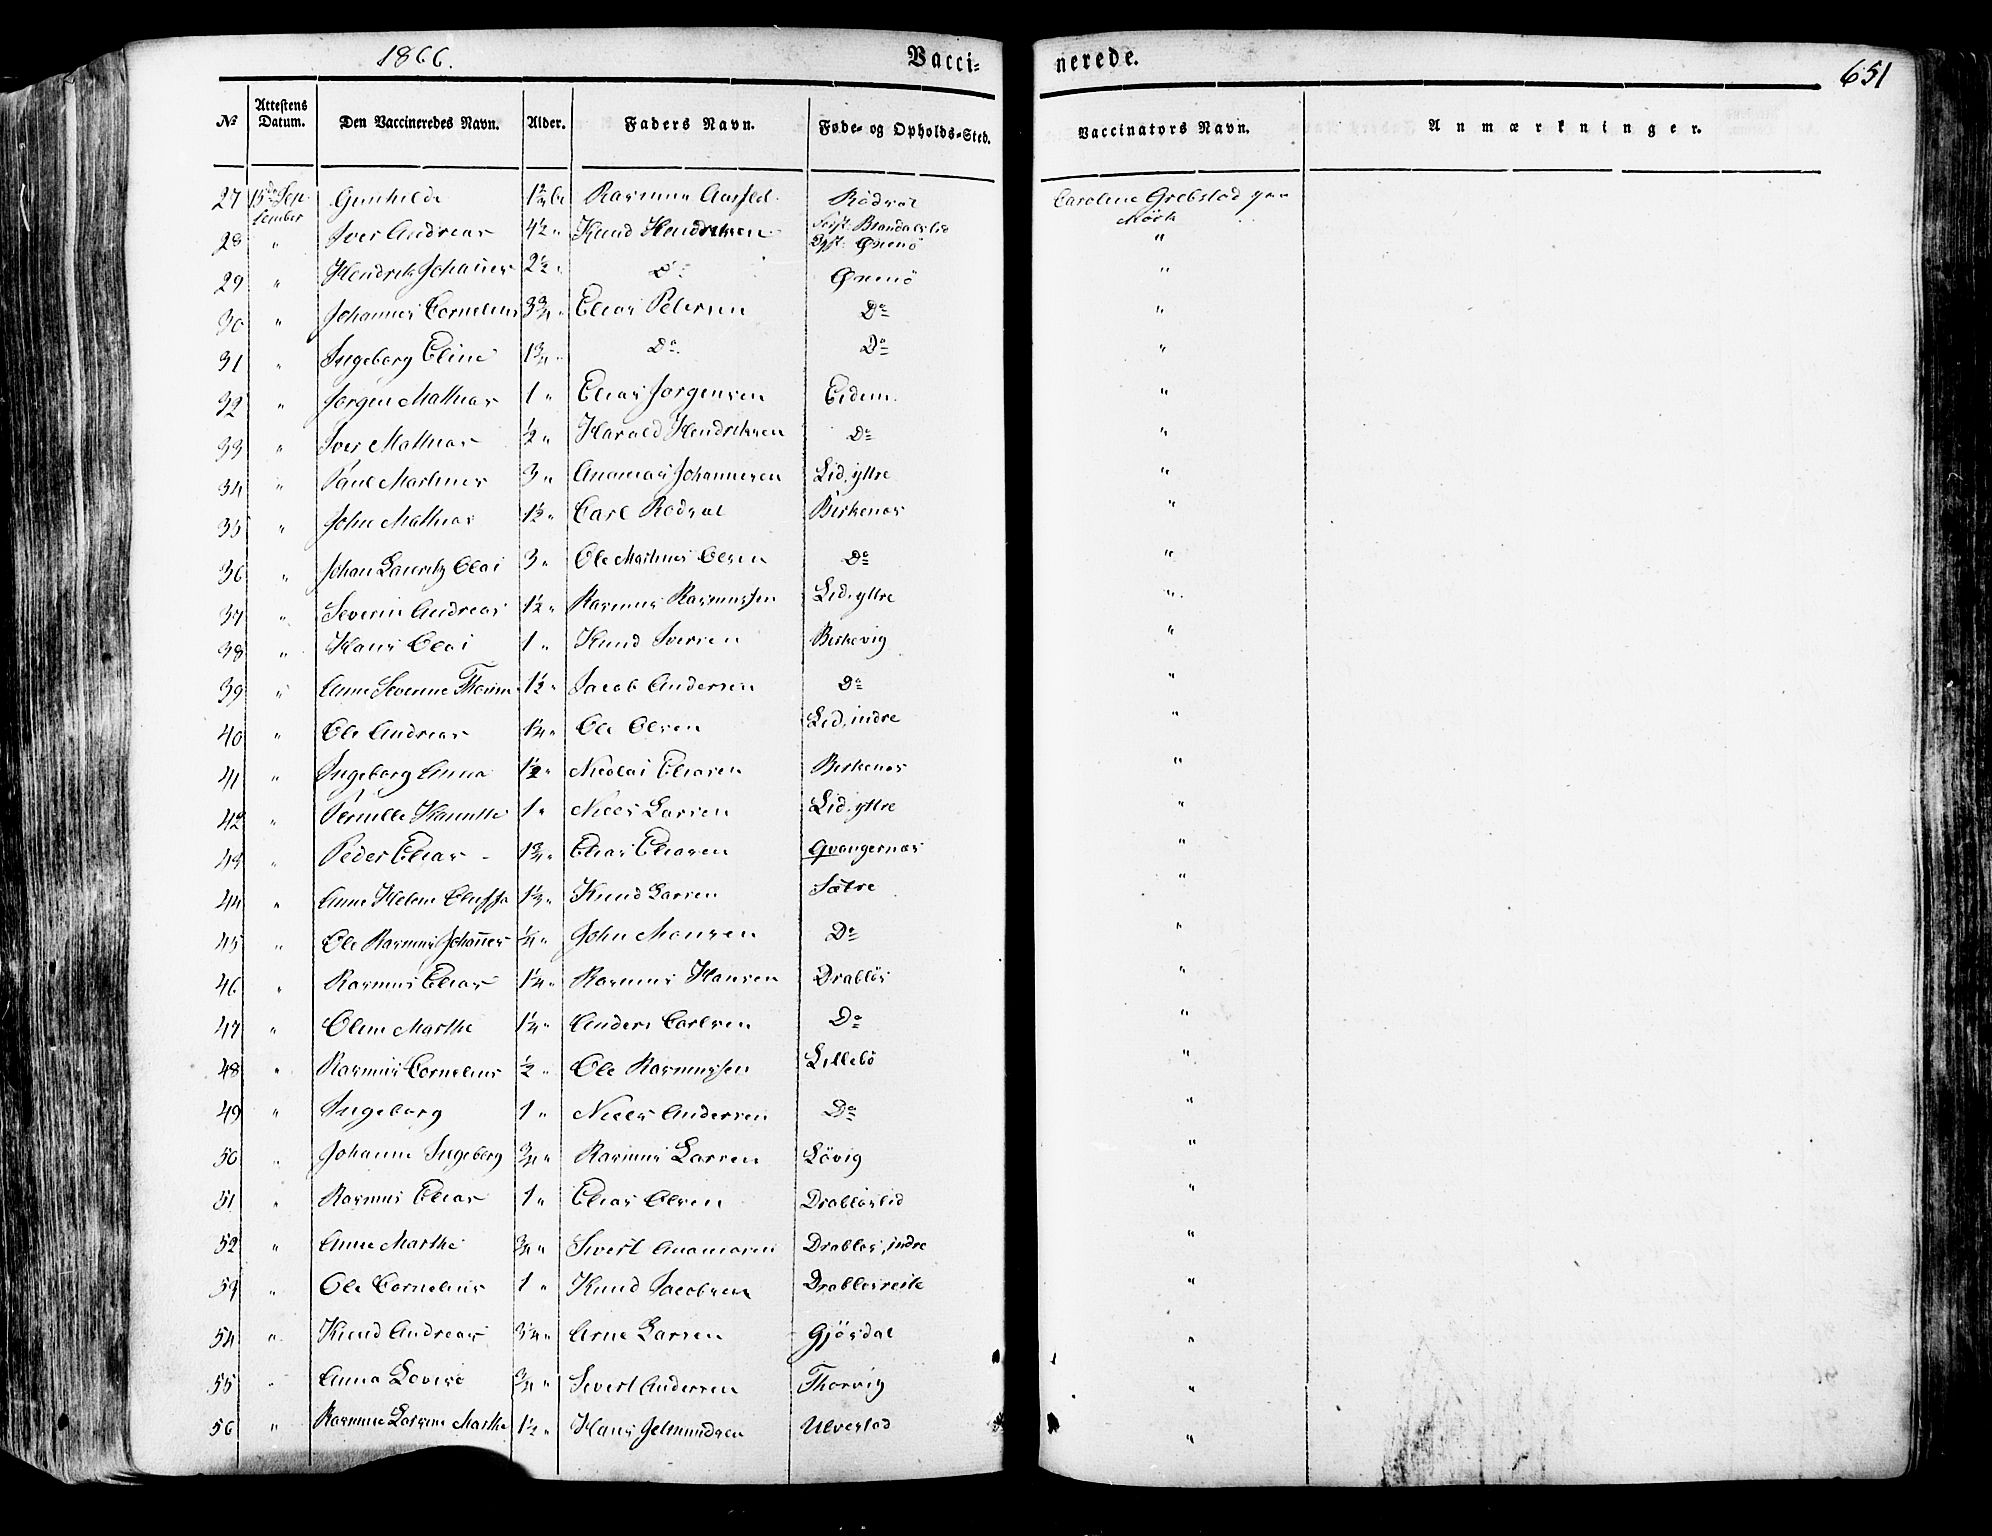 1866.
Vacci-
nerede.
651
No
Attestens Datum.
Den Vaccineredes Navn.
Alder.
Faders Navn.
Føde- og Opholds-Sted.
Vaccinators Navn.
Anmærkninger.
27 15de September Gunhilde Rasmus Rödsæt Caroline Grebstad paa Mörk
28 " Iver Andreas 4½ " Knud Hendriksen Brandalslid Öxenö "
29 " Hendrik Johannes 2½ " Do Öxenö "
30 " Johannes Cornelius 3¾ " Elias Petersen Do "
31 " Ingeborg Eline 1¾ " Do Do "
32 " Jørgen Mathias 1 " Elias Jørgensen Eidem. "
33 " Iver Mathias ½ " Harald Hendriksen Do "
34 " Paul Martinus 3 " Johannesen Lid, yttre "
35 " John Mathias 1½ " Carl Rödsæt Birkenæs "
36 " Johan Lauritz Olai 3 " Ole Martinus Olsen Do "
37 " Severin Andreas 1½ " Rasmus Rasmussen Lid, yttre "
38 " Hans Olai 1 " Knud Iversen Birkevig "
39 " Anne Severine 1½ " Jacob Andersen Do "
40 " Ole Andreas 1¼ " Ole Olsen Lid, indre "
41 " Ingeborg Anna 1½ " Nicolai Eliasen Birkenæs "
42 " Pernille 1 " Niels Larsen Lid, yttre "
43 " Peder Elias - 1¾ " Elias Eliasen Qvangernæs "
44 " Anne Helene 1½ " Knud Larsen Sætre "
45 " Ole Rasmus Johannes ¼ " John Monsen Do "
46 " Rasmus Elias 1¼ " Rasmus Hansen Drabløs "
47 " Oline Marthe 1¼ " Anders Carlsen Do "
48 " Rasmus Cornelius ½ " Ole Rasmussen Lillebö "
49 " Ingeborg 1 " Niels Andersen Do "
50 " Johanne Ingeborg ¾ " Rasmus Larsen Lövig "
51 " Rasmus Elias 1 " Elias Olsen Drabløslid "
52 " Anne Marthe ¾ " Sivert Drabløs, indre "
53 " Ole Cornelius 1 " Knud Jacobsen "
54 " Knud Andreas 3¼ " Arne Larsen Gjösdal "
55 " Anna Lovise ¾ " Sivert Andersen Thorvig "
56 " Marthe 1½ " Hans Jetmundsen Ulvestad "